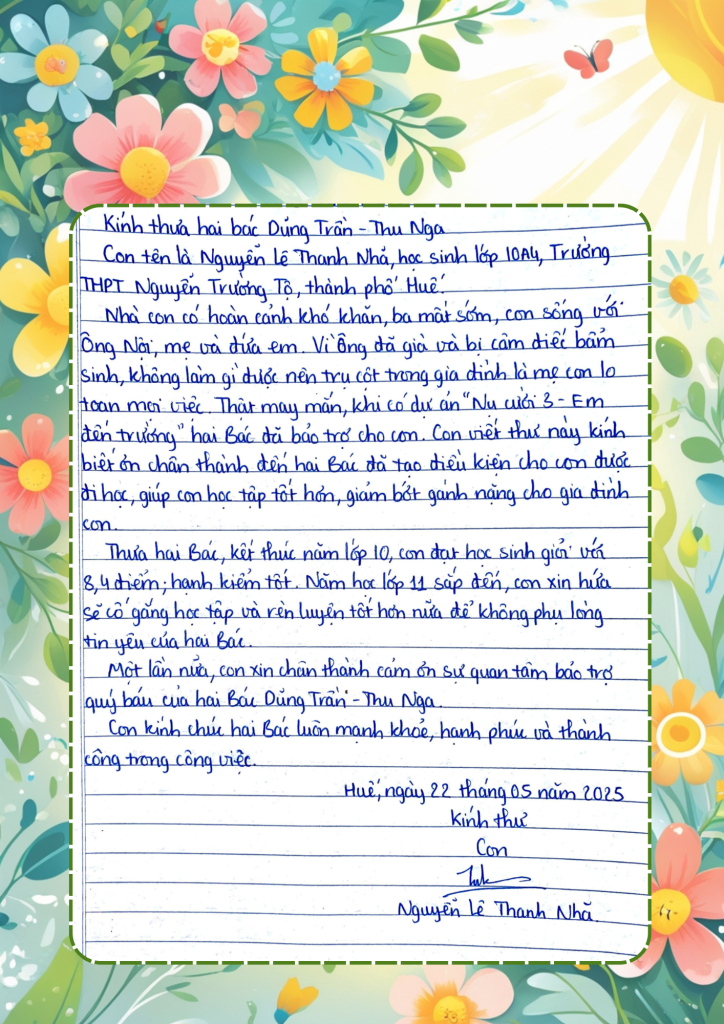 Kính thưa hai bác Dũng Trần - Thu Nga
Con tên là Nguyễn Lê Thanh Nhã, học sinh lớp 10A4, Trường
THPT Nguyễn Trường Tộ, thành phố Huế.
Nhà con có hoàn cảnh khó khăn, ba mất sớm, con sống với
Ông Nội, mẹ và đứa em. Vì Ông đã già và bị câm điếc bẩm
sinh, không làm gì được nên trụ cột trong gia đình là mẹ con lo
toan mọi việc. Thật may mắn, khi có dự án "Nụ cười 3 - Em
đến trường" hai Bác đã bảo trợ cho con. Con viết thư này kính
biết ơn chân thành đến hai Bác đã tạo điều kiện cho con được
đi học, giúp con học tập tốt hơn, giảm bớt gánh nặng cho gia đình
con.
Thưa hai Bác, kết thúc năm lớp 10, con đạt học sinh giỏi với
8,4 điểm; hạnh kiểm tốt. Năm học lớp 11 sắp đến, con xin hứa
sẽ cố gắng học tập và rèn luyện tốt hơn nữa để không phụ lòng
tin yêu của hai Bác.
Một lần nữa, con xin chân thành cảm ơn sự quan tâm bảo trợ
quý báu của hai Bác Dũng Trần - Thu Nga.
Con kính chúc hai Bác luôn mạnh khoẻ, hạnh phúc và thành
công trong công việc.
Huế, ngày 22 tháng 05 năm 2025
Kính thư
Con
Nguyễn Lê Thanh Nhã